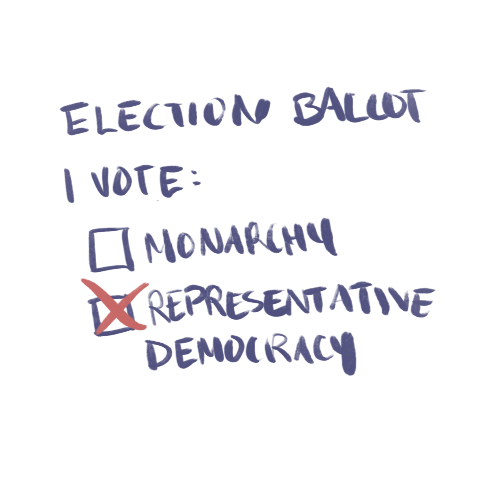 ELECTION BALLOT
I VOTE:
MONARCHY
REPRESENTATIVE
DEMOCRACY